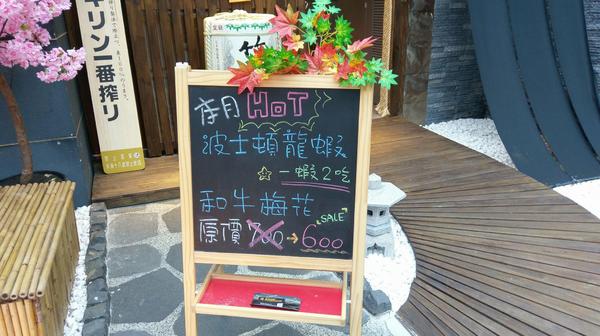 キリン一番搾り
本月 HOT
波士頓龍蝦
☆一蝦2吃
和牛梅花
SALE
原價 700→600